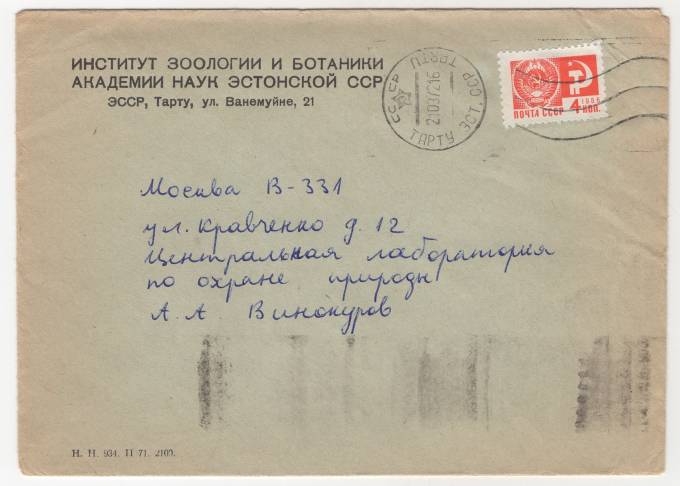 ИНСТИТУТ ЗООЛОГИИ И БОТАНИКИ
АКАДЕМИИ НАУК ЭСТОНСКОЙ ССР
ЭССР, Тарту, ул. Ванемуйне, 21
СССР
ТАРТУ ЭСТ. ССР TARTU
ПОЧТА СССР 4 КОП.
1966
Москва В-331
ул. Кравченко д. 12
Центральная лаборатория
по охране природы
А. А. Винокуров
Н. Н. 934. II 71. 2100.